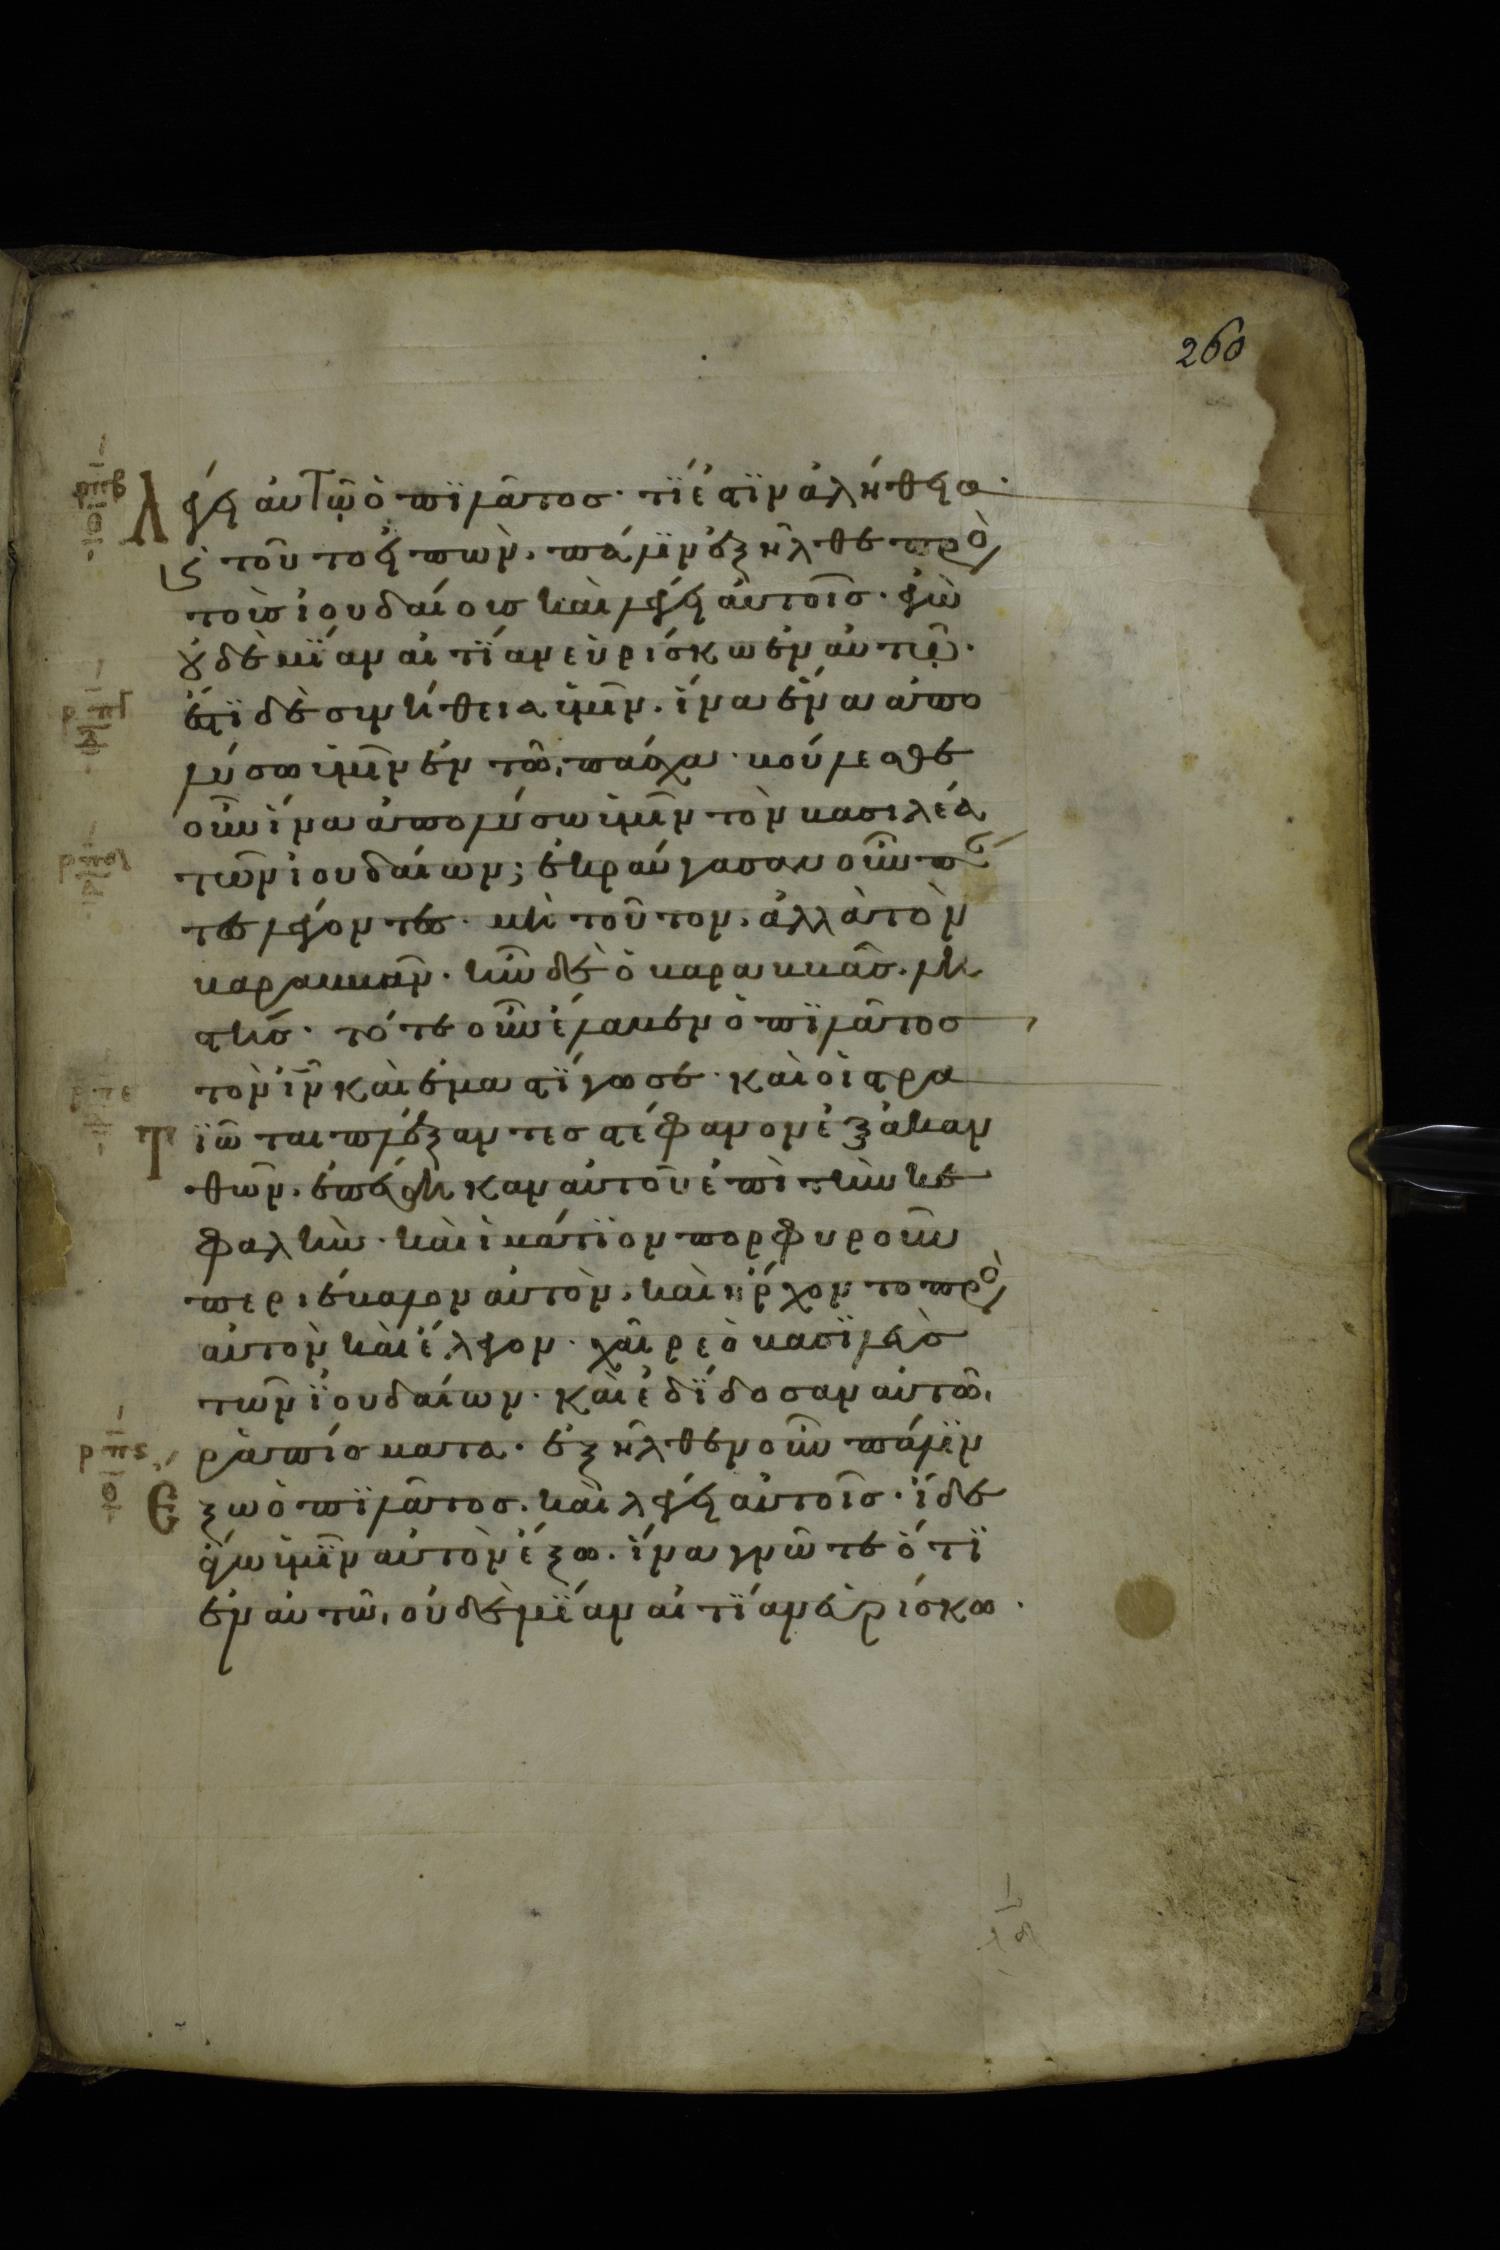 260
Λέγει αὐτῷ ὁ πϊλᾶτος· τΐ ἐστϊν ἀλήθεια·
καὶ τοῦτο εἰπὼν. πάλϊν ἐξῆλθε πρὸς
τοὺς ἰουδαίους καὶ λέγει αὐτοῖς· ἐγὼ
οὐδεμΐαν αἰτΐαν εὑρίσκω ἐν αὐτῷ·
ἔστϊ δὲ συνήθεια ὑμῖν. ἵνα ἕνα ἀπο
λύσω ὑμῖν ἐν τῶ πάσχα· βούλεσθε
οὖν ἵνα ἀπολύσω ὑμῖν τὸν βασιλέα
τῶν ἰουδαίων; ἐκραύγασαν οὖν πάν
τες λέγοντες· μὴ τοῦτον. ἀλλὰ τὸν
βαραββᾶν· ἦν δὲ ὁ βαραββᾶς. λη
στής· τότε οὖν ἔλαβεν ὁ πϊλᾶτος
τὸν ιν καὶ ἐμαστΐγωσε· καὶ οἱ στρα
Τϊῶται πλέξαντες στέφανον ἐξ ἀκαν
θῶν. ἐπέθηκαν αὐτοῦ ἐπὶ τὴν κε
φαλὴν· καὶ ἱμάτϊον πορφυροῦν
περιέβαλον αὐτὸν. καὶ ἤρχοντο πρὸς
αὐτὸν καὶ ἔλεγον· χαῖρε ὁ βασϊλεὺς
τῶν ἰουδαίων· καὶ ἐδΐδοσαν αὐτῶ.
ρπϛ ῥαπίσματα· ἐξῆλθεν οὖν πάλϊν
Ἔξω ὁ πϊλᾶτος. καὶ λέγει αὐτοῖς· ἴδε
ἄγω ὑμῖν αὐτὸν ἔξω. ἵνα γνῶτε ὅτϊ
ἐν αὐτῶ. οὐδεμΐαν αἰτΐαν εὑρίσκω.